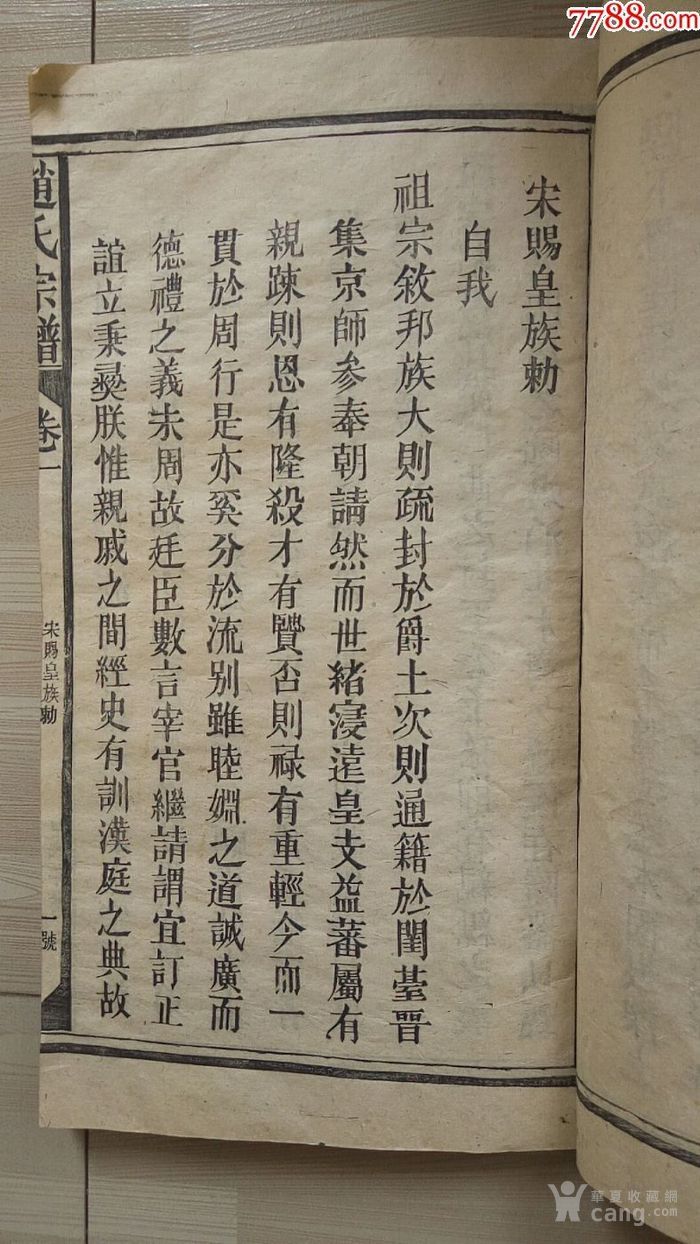 宋賜皇族勅
自我
祖宗敘邦族大則疏封於爵土次則通籍於閨臺晋
集京師参奉朝請然而世緒寖遠皇支益蕃屬有
親踈則恩有隆殺才有賢否則禄有重輕今而一
貫於周行是亦奚分於流别雖睦婣之道誠廣而
德禮之義未周故廷臣數言宰官繼請謂宜訂正
誼立秉彛朕惟親戚之間經史有訓漢庭之典故
趙氏宗譜
卷一
宋賜皇族勅
一號
7788.com
華夏收藏網
cang.com